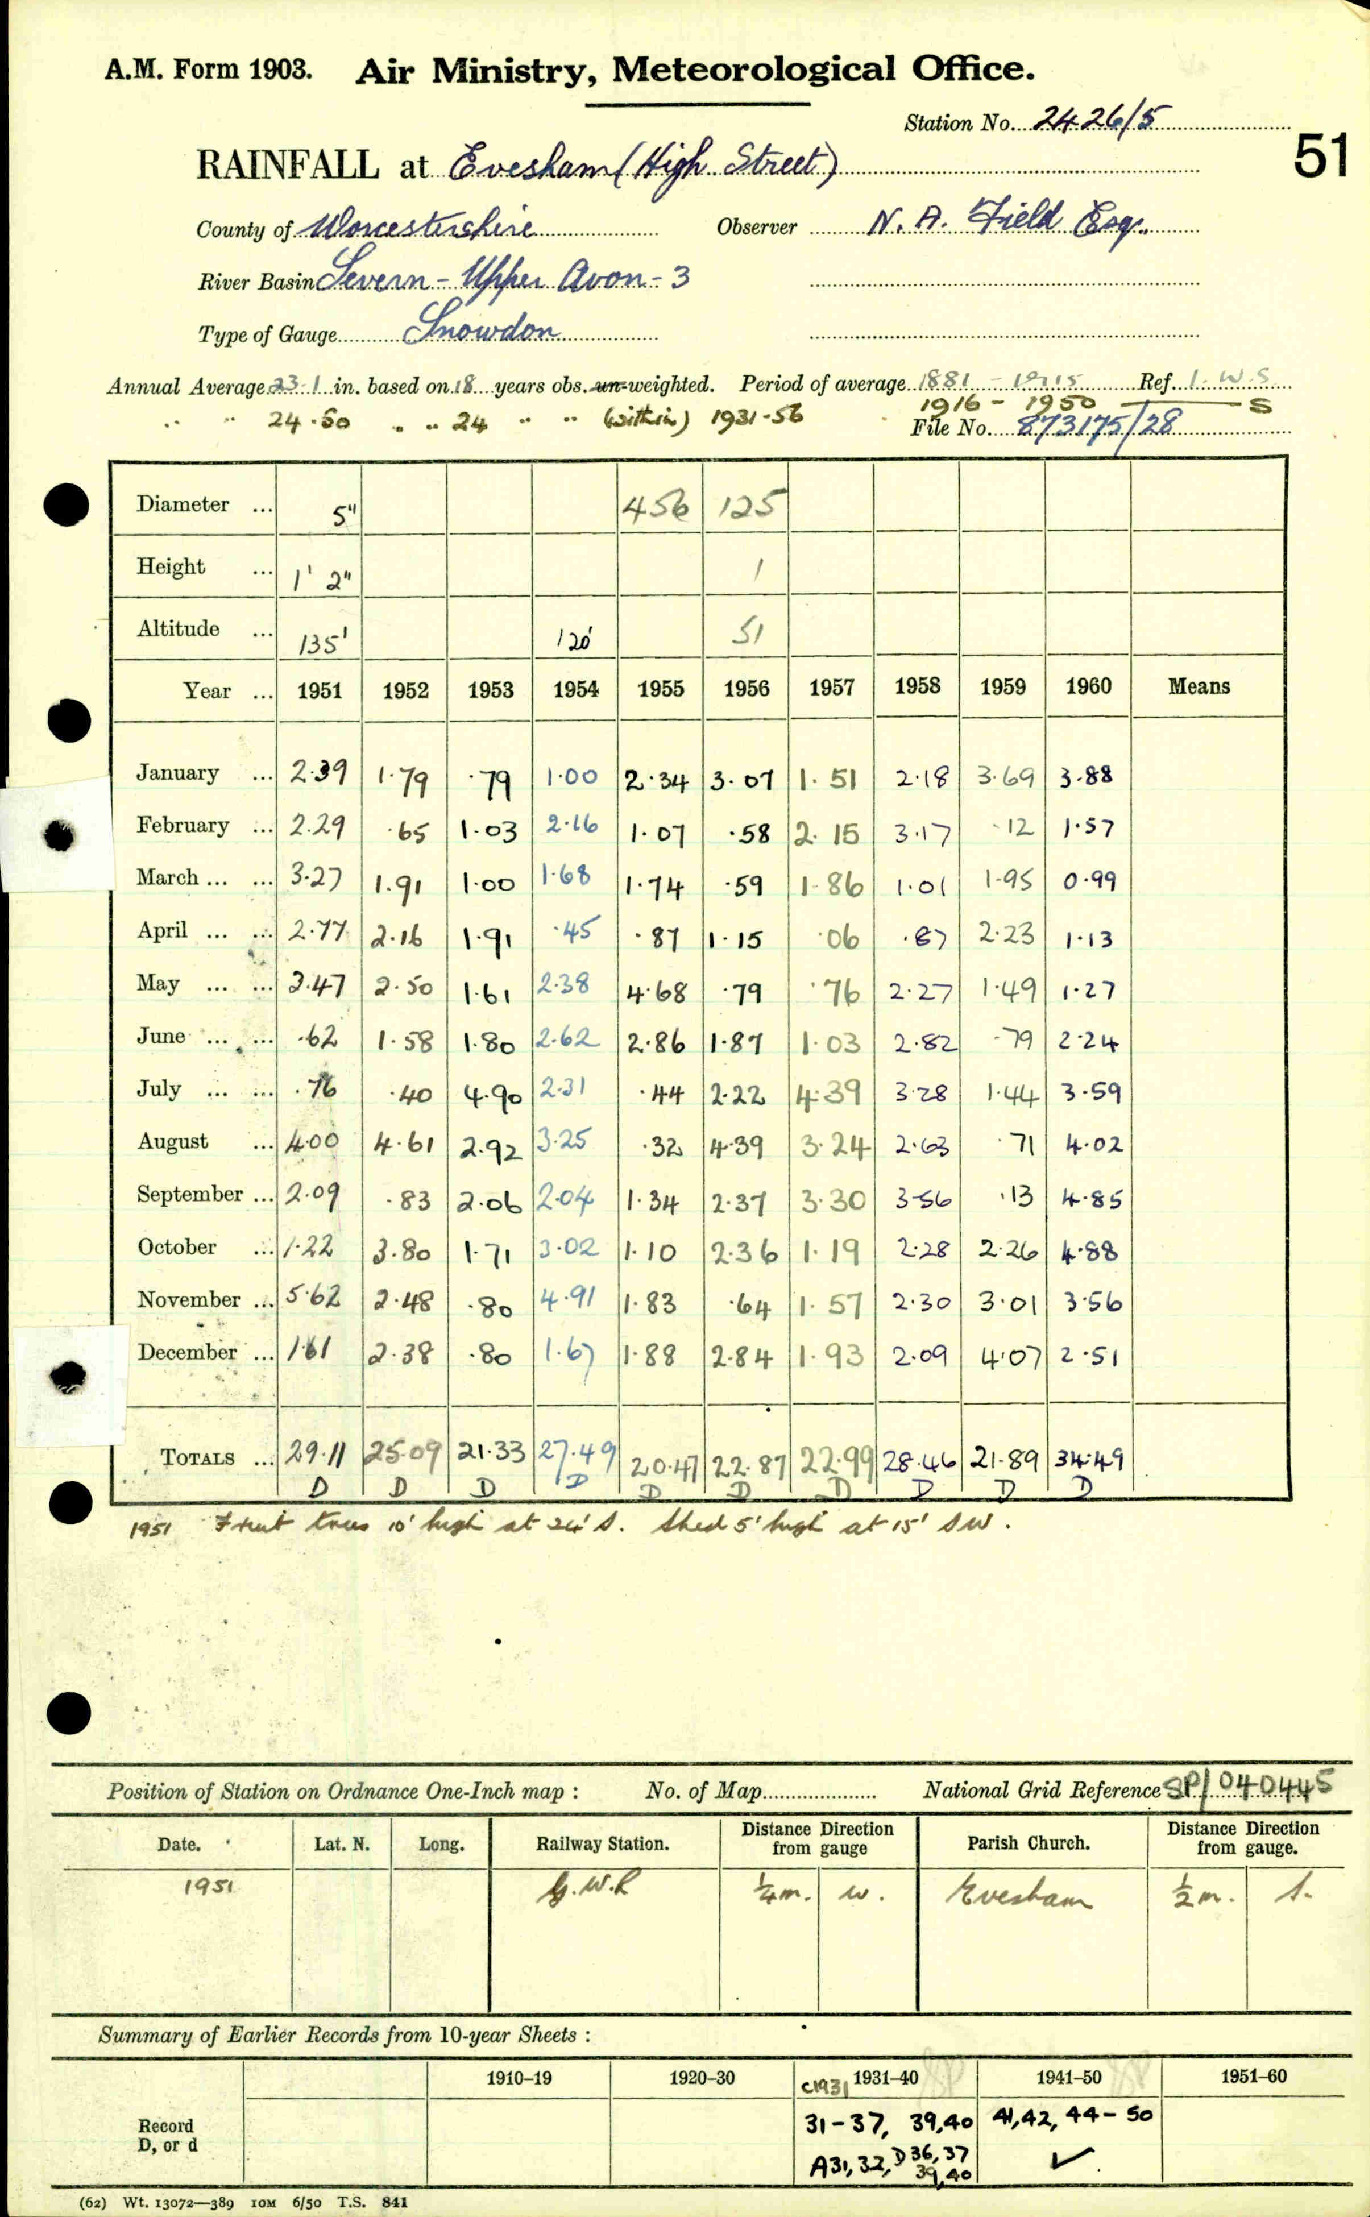 A.M. Form 1903. Air Ministry, Meteorological Office.
Station No. 2426/5
51
RAINFALL at Evesham (High Street)
County of Worcestershire Observer N. A. Field Esq.
River Basin Severn - Upper Avon - 3
Type of Gauge Snowdon
Annual Average 23.1 in. based on 18 years obs. un-weighted. Period of average 1881 - 1915 Ref. I.W.S
" " 24.50 " " 24 " " (within) 1931-56 1916 - 1950 S
File No. 873175/28
Diameter ... 5" 456 125
Height ... 1' 2" 1
Altitude ... 135' 120' 51
Year ... 1951 1952 1953 1954 1955 1956 1957 1958 1959 1960 Means
January ... 2.39 1.79 .79 1.00 2.34 3.07 1.51 2.18 3.69 3.88
February ... 2.29 .65 1.03 2.16 1.07 .58 2.15 3.17 .12 1.57
March ... ... 3.27 1.91 1.00 1.68 1.74 .59 1.86 1.01 1.95 0.99
April ... ... 2.77 2.16 1.91 .45 .87 1.15 .06 .87 2.23 1.13
May ... ... 2.47 2.50 1.61 2.38 4.68 .79 .76 2.27 1.49 1.27
June ... ... .62 1.58 1.80 2.62 2.86 1.87 1.03 2.82 .79 2.24
July ... ... .76 .40 4.90 2.31 .44 2.22 4.39 3.28 1.44 3.59
August ... 4.00 4.61 2.92 3.25 .32 4.39 3.24 2.63 .71 4.02
September ... 2.09 .83 2.06 2.04 1.34 2.37 3.30 3.56 .13 4.85
October ... 1.22 3.80 1.71 3.02 1.10 2.36 1.19 2.28 2.26 4.88
November ... 5.62 2.48 .80 4.91 1.83 .64 1.57 2.30 3.01 3.56
December ... 1.61 2.38 .80 1.67 1.88 2.84 1.93 2.09 4.07 2.51
TOTALS ... 29.11 25.09 21.33 27.49 20.47 22.87 22.99 28.46 21.89 34.49
D D D D D D D D D D
1951 Fruit trees 10' high at 24' S. Shed 5' high at 15' SW.
Position of Station on Ordnance One-Inch map : No. of Map National Grid Reference SP/040445
Date. Lat. N. Long. Railway Station. Distance from Direction gauge Parish Church. Distance from Direction gauge.
1951 G.W.R 1/4 m. W. Evesham 1/2 m. S.
Summary of Earlier Records from 10-year Sheets :
1910–19 1920–30 c1931 1931–40 1941–50 1951–60
Record D, or d 31-37, 39,40 41,42, 44-50
A31, 32, D36, 37 39,40 ✓
(62) Wt. 13072—389 10M 6/50 T.S. 841